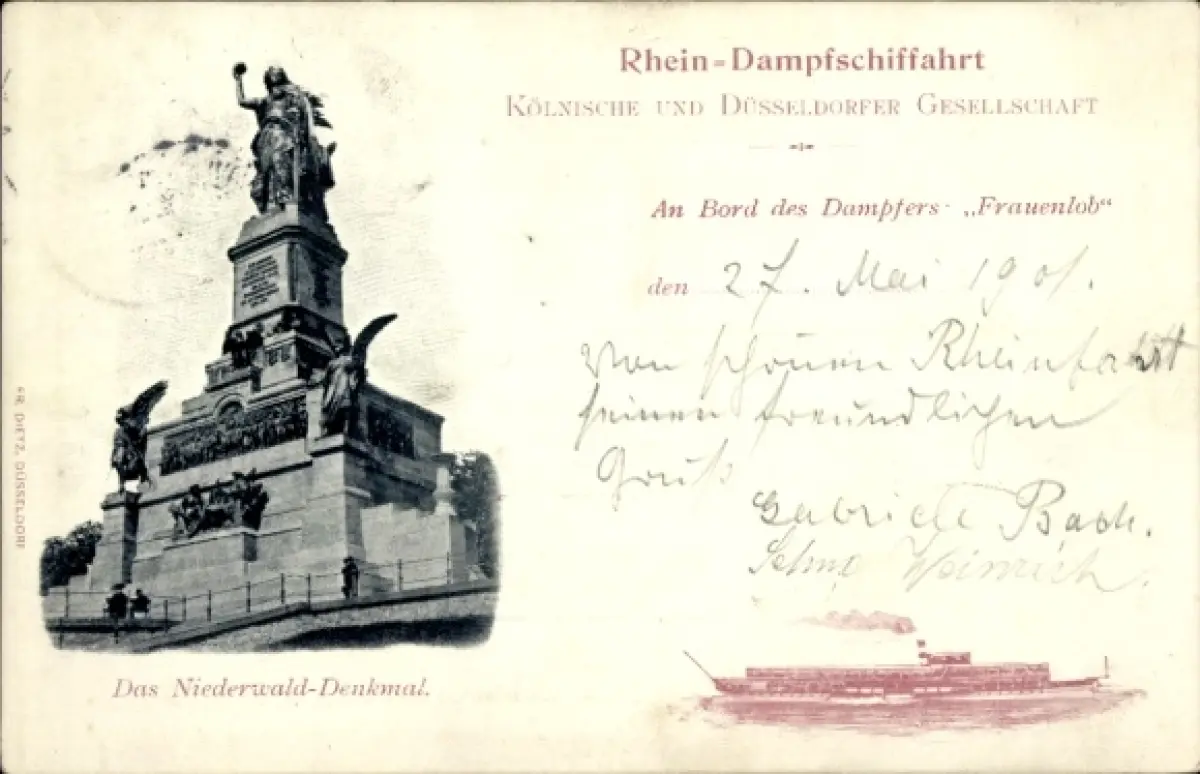 Rhein-Dampfschiffahrt
KÖLNISCHE UND DÜSSELDORFER GESELLSCHAFT
An Bord des Dampfers „Frauenlob“
den 27. Mai 1901.
Von schöner Rheinfahrt
seinen freundlichen
Gruß
Gabriele Bach.
Selma Weinrich.
Das Niederwald-Denkmal.
FR. DIETZ, DÜSSELDORF